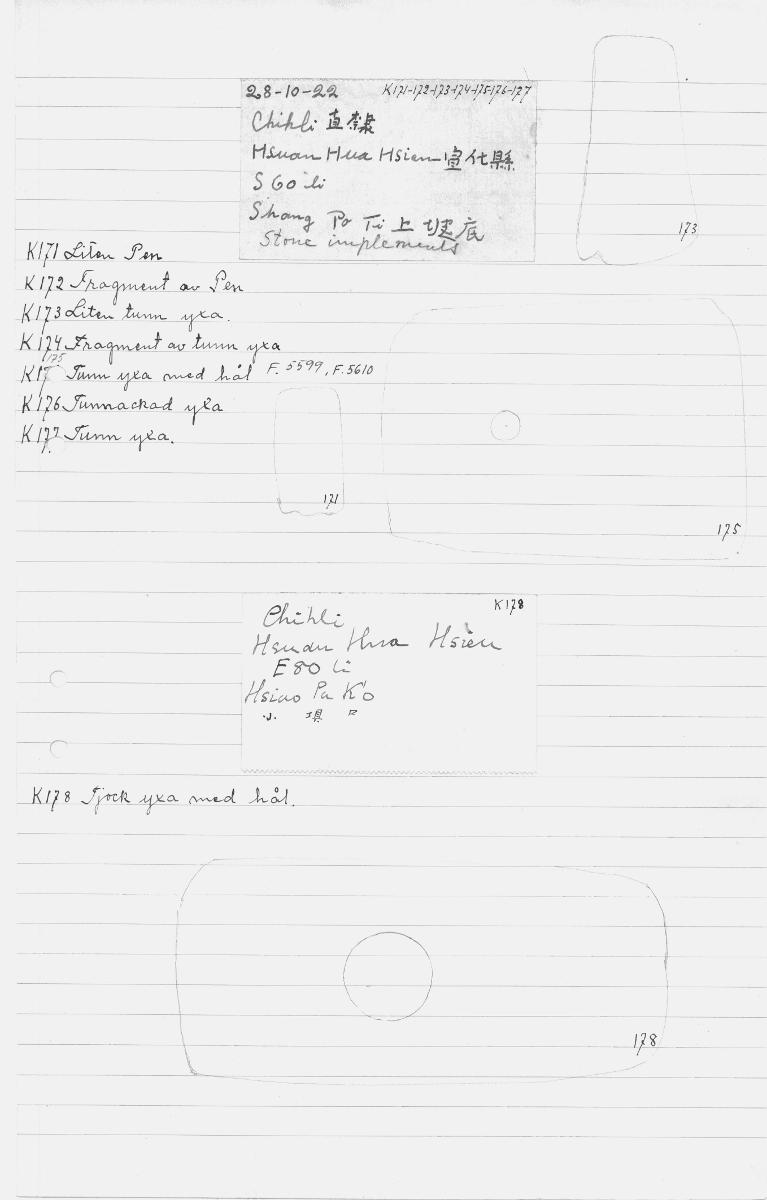 28-10-22 K171-172-173-174-175-176-177
Chihli 直隸
Hsuan Hua Hsien 宣化縣
S 60 li
Shang Po Ti 上坡底
Stone implements
173
K171 Liten Pen
K172 Fragment av Pen
K173 Liten tunn yxa.
K174 Fragment av tunn yxa
175
K17 Tunn yxa med hål F. 5599, F. 5610
K176 Tunnackad yxa
K177 Tunn yxa.
171
175
K178
Chihli
Hsuan Hua Hsien
E 80 li
Hsiao Pa K'o
小 口
K178 Tjock yxa med hål.
178